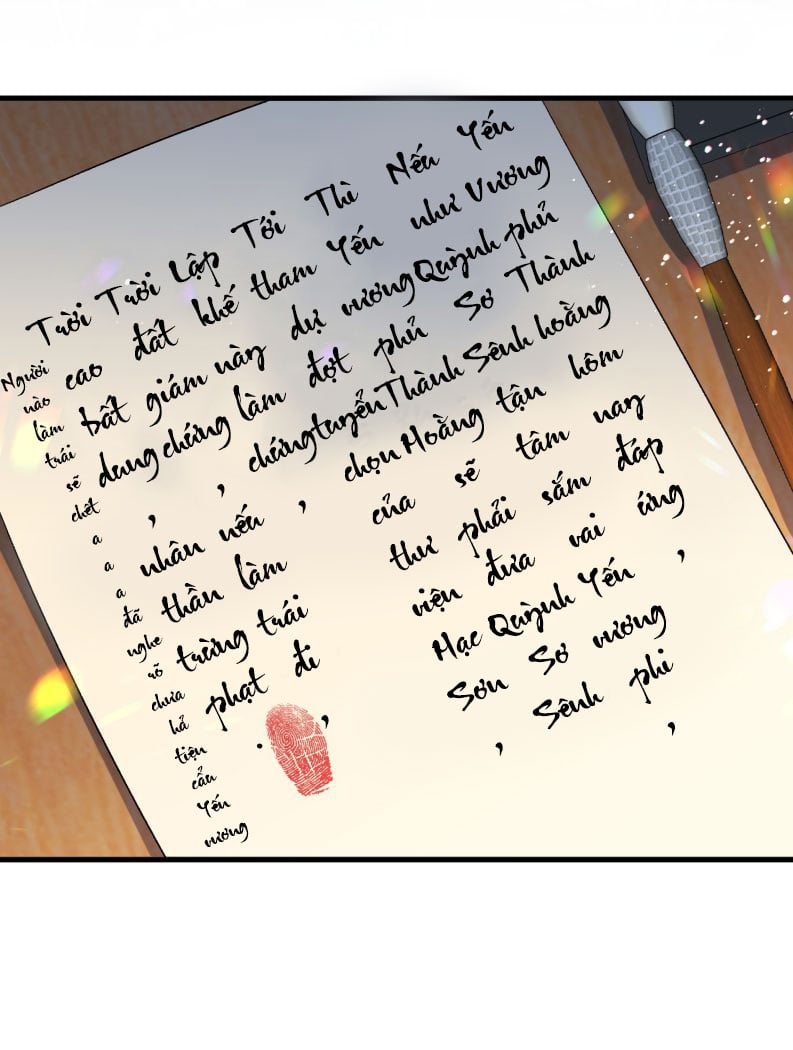 Yến Vương phủ Thành hoằng hôm nay đáp ứng ,
Nếu như Quỳnh Sơ Sênh tận tâm sắm vai Yến vương phi ,
Thì Yến vương phủ Thành Hoằng sẽ phải đưa Quỳnh Sơ Sênh
Tới tham dự đợt tuyển chọn của thư viện Mạc Sơn ,
Lập khế này làm chứng ,
Trời đất giám chứng , nếu làm trái đi ,
Trời cao bất dung , nhân thần trừng phạt .
Người nào làm trái sẽ chết a a a đã nghe rõ chưa hả tiện cẩu Yến vương